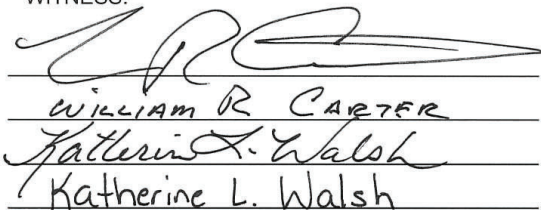 WITNESS:
WILLIAM R CARTER
Katherine L. Walsh
Katherine L. Walsh